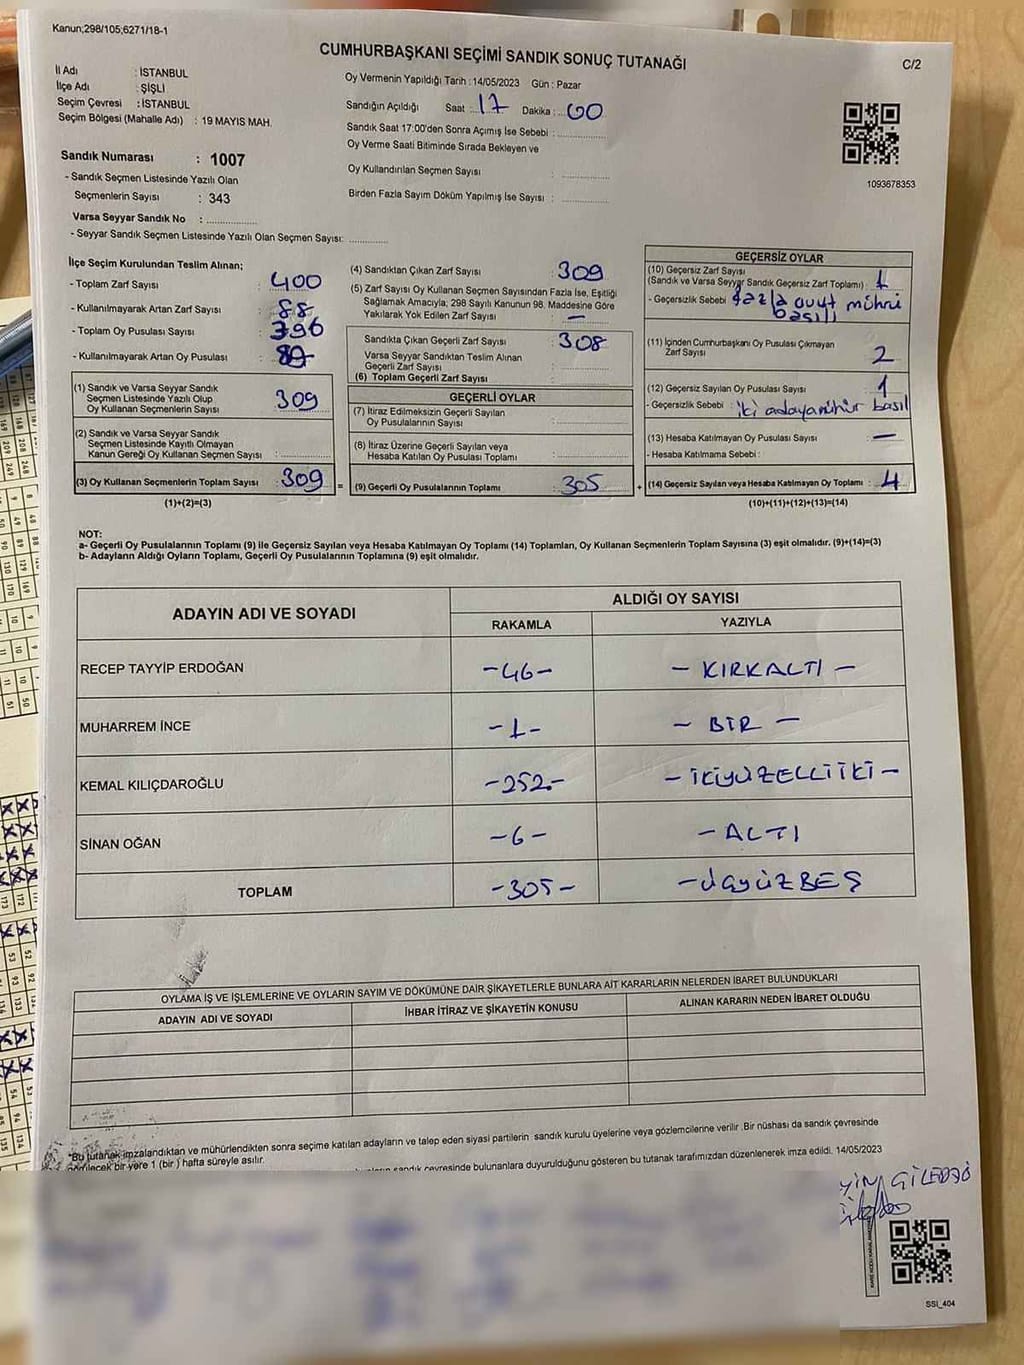 Kanun;298/105;6271/18-1
CUMHURBAŞKANI SEÇİMİ SANDIK SONUÇ TUTANAĞI
C/2
İl Adı : İSTANBUL
İlçe Adı : ŞİŞLİ
Seçim Çevresi : İSTANBUL
Seçim Bölgesi (Mahalle Adı) : 19 MAYIS MAH.
Sandık Numarası : 1007
- Sandık Seçmen Listesinde Yazılı Olan
Seçmenlerin Sayısı : 343
Varsa Seyyar Sandık No :
- Seyyar Sandık Seçmen Listesinde Yazılı Olan Seçmen Sayısı:
Oy Vermenin Yapıldığı Tarih : 14/05/2023 Gün : Pazar
Sandığın Açıldığı Saat : 17 Dakika : 00
Sandık Saat 17:00'den Sonra Açımış İse Sebebi :
Oy Verme Saati Bitiminde Sırada Bekleyen ve
Oy Kullandırılan Seçmen Sayısı :
Birden Fazla Sayım Döküm Yapılmış İse Sayısı :
1093678353
İlçe Seçim Kurulundan Teslim Alınan;
- Toplam Zarf Sayısı : 400
- Kullanılmayarak Artan Zarf Sayısı : 88
- Toplam Oy Pusulası Sayısı : 396
- Kullanılmayarak Artan Oy Pusulası :
(1) Sandık ve Varsa Seyyar Sandık
Seçmen Listesinde Yazılı Olup
Oy Kullanan Seçmenlerin Sayısı : 309
(2) Sandık ve Varsa Seyyar Sandık
Seçmen Listesinde Kayıtlı Olmayan
Kanun Gereği Oy Kullanan Seçmen Sayısı :
(3) Oy Kullanan Seçmenlerin Toplam Sayısı : 309 =
(1)+(2)=(3)
(4) Sandıktan Çıkan Zarf Sayısı : 309
(5) Zarf Sayısı Oy Kullanan Seçmen Sayısından Fazla İse, Eşitliği
Sağlamak Amacıyla; 298 Sayılı Kanunun 98. Maddesine Göre
Yakılarak Yok Edilen Zarf Sayısı : —
Sandıkta Çıkan Geçerli Zarf Sayısı : 308
Varsa Seyyar Sandıktan Teslim Alınan
Geçerli Zarf Sayısı :
(6) Toplam Geçerli Zarf Sayısı :
GEÇERLİ OYLAR
(7) İtiraz Edilmeksizin Geçerli Sayılan
Oy Pusulalarının Sayısı :
(8) İtiraz Üzerine Geçerli Sayılan veya
Hesaba Katılan Oy Pusulası Toplamı :
(9) Geçerli Oy Pusulalarının Toplamı : 305 +
GEÇERSİZ OYLAR
(10) Geçersiz Zarf Sayısı
(Sandık ve Varsa Seyyar Sandık Geçersiz Zarf Toplamı) : 1
- Geçersizlik Sebebi : fazla evet mührü
basılı
(11) İçinden Cumhurbaşkanı Oy Pusulası Çıkmayan
Zarf Sayısı : 2
(12) Geçersiz Sayılan Oy Pusulası Sayısı : 1
- Geçersizlik Sebebi : iki adaya mühür basılı
(13) Hesaba Katılmayan Oy Pusulası Sayısı : —
- Hesaba Katılmama Sebebi :
(14) Geçersiz Sayılan veya Hesaba Katılmayan Oy Toplamı : 4
(10)+(11)+(12)+(13)=(14)
NOT:
a- Geçerli Oy Pusulalarının Toplamı (9) ile Geçersiz Sayılan veya Hesaba Katılmayan Oy Toplamı (14) Toplamları, Oy Kullanan Seçmenlerin Toplam Sayısına (3) eşit olmalıdır. (9)+(14)=(3)
b- Adayların Aldığı Oyların Toplamı, Geçerli Oy Pusulalarının Toplamına (9) eşit olmalıdır.
ADAYIN ADI VE SOYADI
ALDIĞI OY SAYISI
RAKAMLA YAZIYLA
RECEP TAYYİP ERDOĞAN -46- - KIRKALTI -
MUHARREM İNCE -1- - BİR -
KEMAL KILIÇDAROĞLU -252- - İKİYÜZELLİİKİ -
SİNAN OĞAN -6- - ALTI
TOPLAM -305- - ÜÇYÜZBEŞ
OYLAMA İŞ VE İŞLEMLERİNE VE OYLARIN SAYIM VE DÖKÜMÜNE DAİR ŞİKAYETLERLE BUNLARA AİT KARARLARIN NELERDEN İBARET BULUNDUKLARI
ADAYIN ADI VE SOYADI İHBAR İTİRAZ VE ŞİKAYETİN KONUSU ALINAN KARARIN NEDEN İBARET OLDUĞU
*Bu tutanak imzalandıktan ve mühürlendikten sonra seçime katılan adayların ve talep eden siyasi partilerin sandık kurulu üyelerine veya gözlemcilerine verilir. Bir nüshası da sandık çevresinde
görülecek bir yere 1 (bir) hafta süreyle asılır.
sandık çevresinde bulunanlara duyurulduğunu gösteren bu tutanak tarafımızdan düzenlenerek imza edildi. 14/05/2023
SSI_404